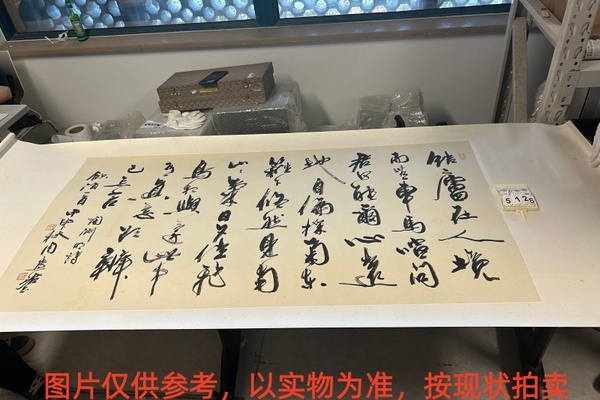 結廬在人境
而無車馬喧問
君何能爾心遠
地自偏採菊東
籬下悠然見南
山山氣日夕佳飛
鳥相與還此中
有真意欲辨
已忘言
飲酒一首 陶淵明詩
5120
图片仅供参考，以实物为准，按现状拍卖